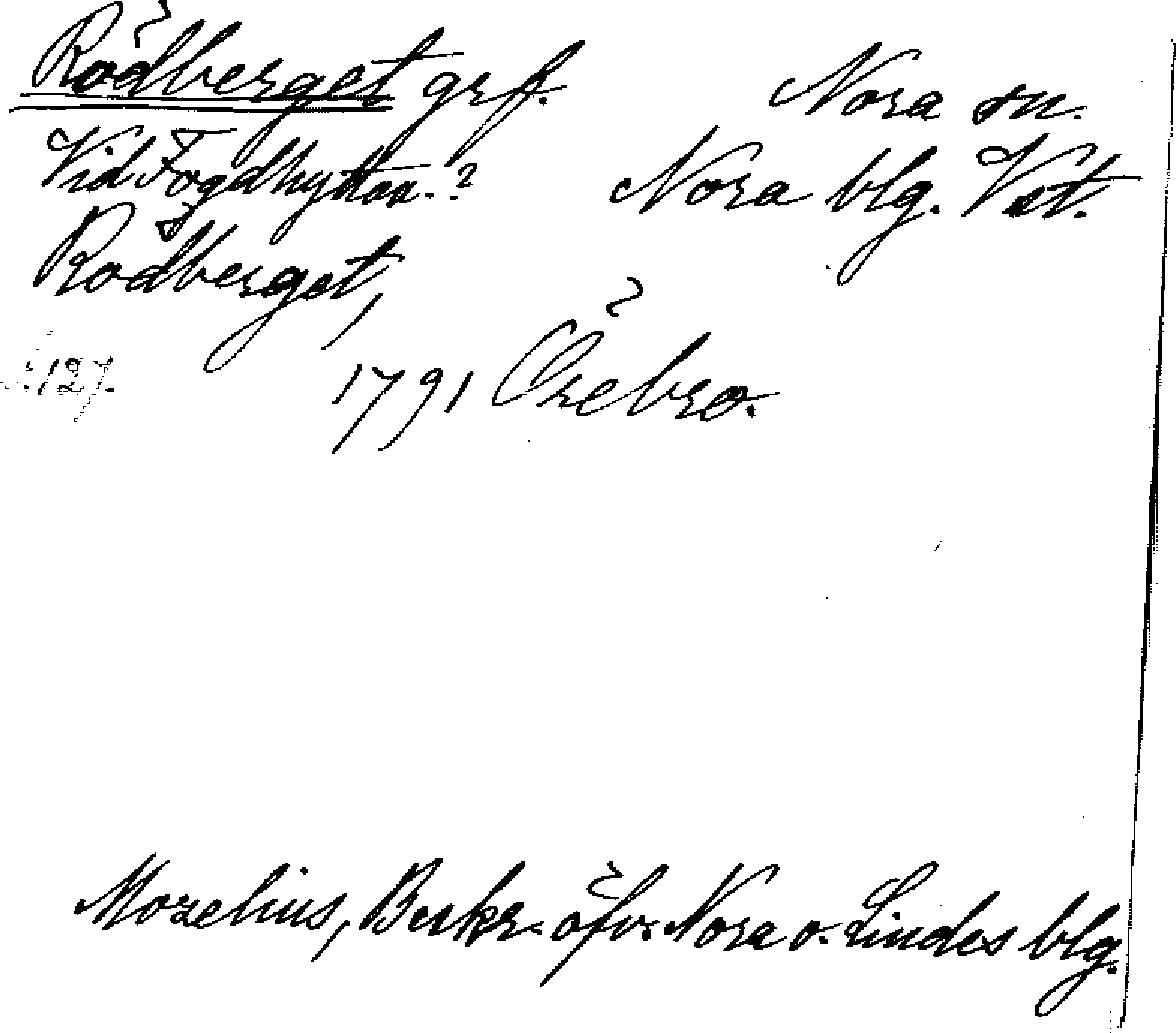 Rödberget grf. Nora sn.
Vid Fogdhyttan.? Nora blg. Vst.
Rödberget,
127.
1791 Örebro.
Morelius, Beskr. öfv. Nora o. Lindes blg.